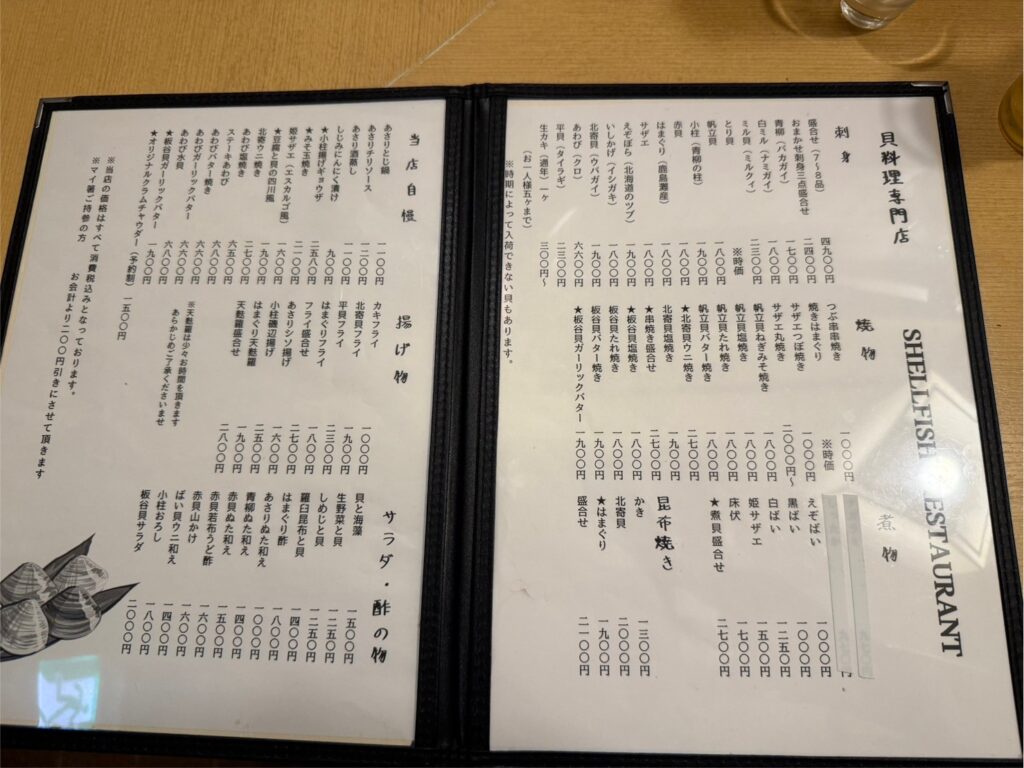 貝料理専門店
SHELLFISH ESTAURANT
刺身
盛合せ（7〜8品） 四九〇〇円
おまかせ刺身三点盛合せ 二四〇〇円
青柳（バカガイ） 一七〇〇円
白ミル（ナミガイ） 一八〇〇円
ミル貝（ミルクイ） 二三〇〇円
とり貝 ※時価
帆立貝 一八〇〇円
小柱（青柳の柱） 一九〇〇円
赤貝 一八〇〇円
はまぐり（鹿島灘産） 一八〇〇円
サザエ 一八〇〇円
えぞぼら（北海道のツブ） 一八〇〇円
いしかげ（イシガキ） 一九〇〇円
北寄貝（ウバガイ） 一九〇〇円
あわび（クロ） 六六〇〇円
平貝（タイラギ） 二三〇〇円
生カキ（通年）一ヶ 三〇〇円〜
（お一人様五ヶまで）
※時期によって入荷できない貝もあります。
焼物
つぶ串串焼き 一〇〇〇円
焼きはまぐり ※時価
サザエつぼ焼き 一〇〇〇円
サザエ丸焼き 二〇〇〇円〜
帆立貝ねぎみそ焼き 一八〇〇円
帆立貝塩焼き 一八〇〇円
帆立貝たれ焼き 一八〇〇円
帆立貝バター焼き 一八〇〇円
★北寄貝ウニ焼き 二七〇〇円
北寄貝塩焼き 一九〇〇円
★串焼き盛合せ 二七〇〇円
★板谷貝塩焼き 一八〇〇円
板谷貝たれ焼き 一八〇〇円
板谷貝バター焼き 一九〇〇円
★板谷貝ガーリックバター 一九〇〇円
煮物
えぞばい 一〇〇〇円
黒ばい 一〇〇〇円
白ばい 一二五〇円
姫サザエ 一五〇〇円
床伏 一七〇〇円
★煮貝盛合せ 二七〇〇円
昆布焼き
かき 一三〇〇円
北寄貝 二〇〇〇円
★はまぐり 一九〇〇円
盛合せ 二一〇〇円
当店自慢
あさりとじ鍋 一一〇〇円
あさりチリソース 一二〇〇円
あさり酒蒸し 一一〇〇円
しじみにんにく漬け 九〇〇円
★小柱揚げギョウザ
★みそ玉焼き 二一〇〇円
姫サザエ（エスカルゴ風） 一六〇〇円
★豆腐と貝の四川風
北寄ウニ焼き 二七〇〇円
あわび塩焼き 六五〇〇円
ステーキあわび 六六〇〇円
あわびバター焼き 六六〇〇円
あわびガーリックバター 六八〇〇円
あわび水貝
★板谷貝ガーリックバター 一九〇〇円
★オリジナルクラムチャウダー（予約制） 一五〇〇円
※当店の価格はすべて消費税込みとなっております。
※マイ箸ご持参の方
お会計より二〇〇円引きにさせて頂きます
揚げ物
カキフライ 一〇〇〇円
北寄貝フライ 一九〇〇円
平貝フライ 二三〇〇円
はまぐりフライ 一八〇〇円
フライ盛合せ 二七〇〇円
あさりシソ揚げ 一六〇〇円
小柱磯辺揚げ 二五〇〇円
はまぐり天麩羅 一九〇〇円
天麩羅盛合せ 二八〇〇円
※天麩羅は少々お時間を頂きます
あらかじめご了承くださいませ
サラダ・酢の物
貝と海藻 一五〇〇円
生野菜と貝 一二五〇円
しめじと貝 一二五〇円
羅臼昆布と貝 一四〇〇円
はまぐり酢 一八〇〇円
あさりぬた和え 一〇〇〇円
青柳ぬた和え 一四〇〇円
赤貝ぬた和え 一五〇〇円
赤貝若布うど酢 一六〇〇円
赤貝山かけ 一六〇〇円
ばい貝ウニ和え 一四〇〇円
小柱おろし 一八〇〇円
板谷貝サラダ 二〇〇〇円